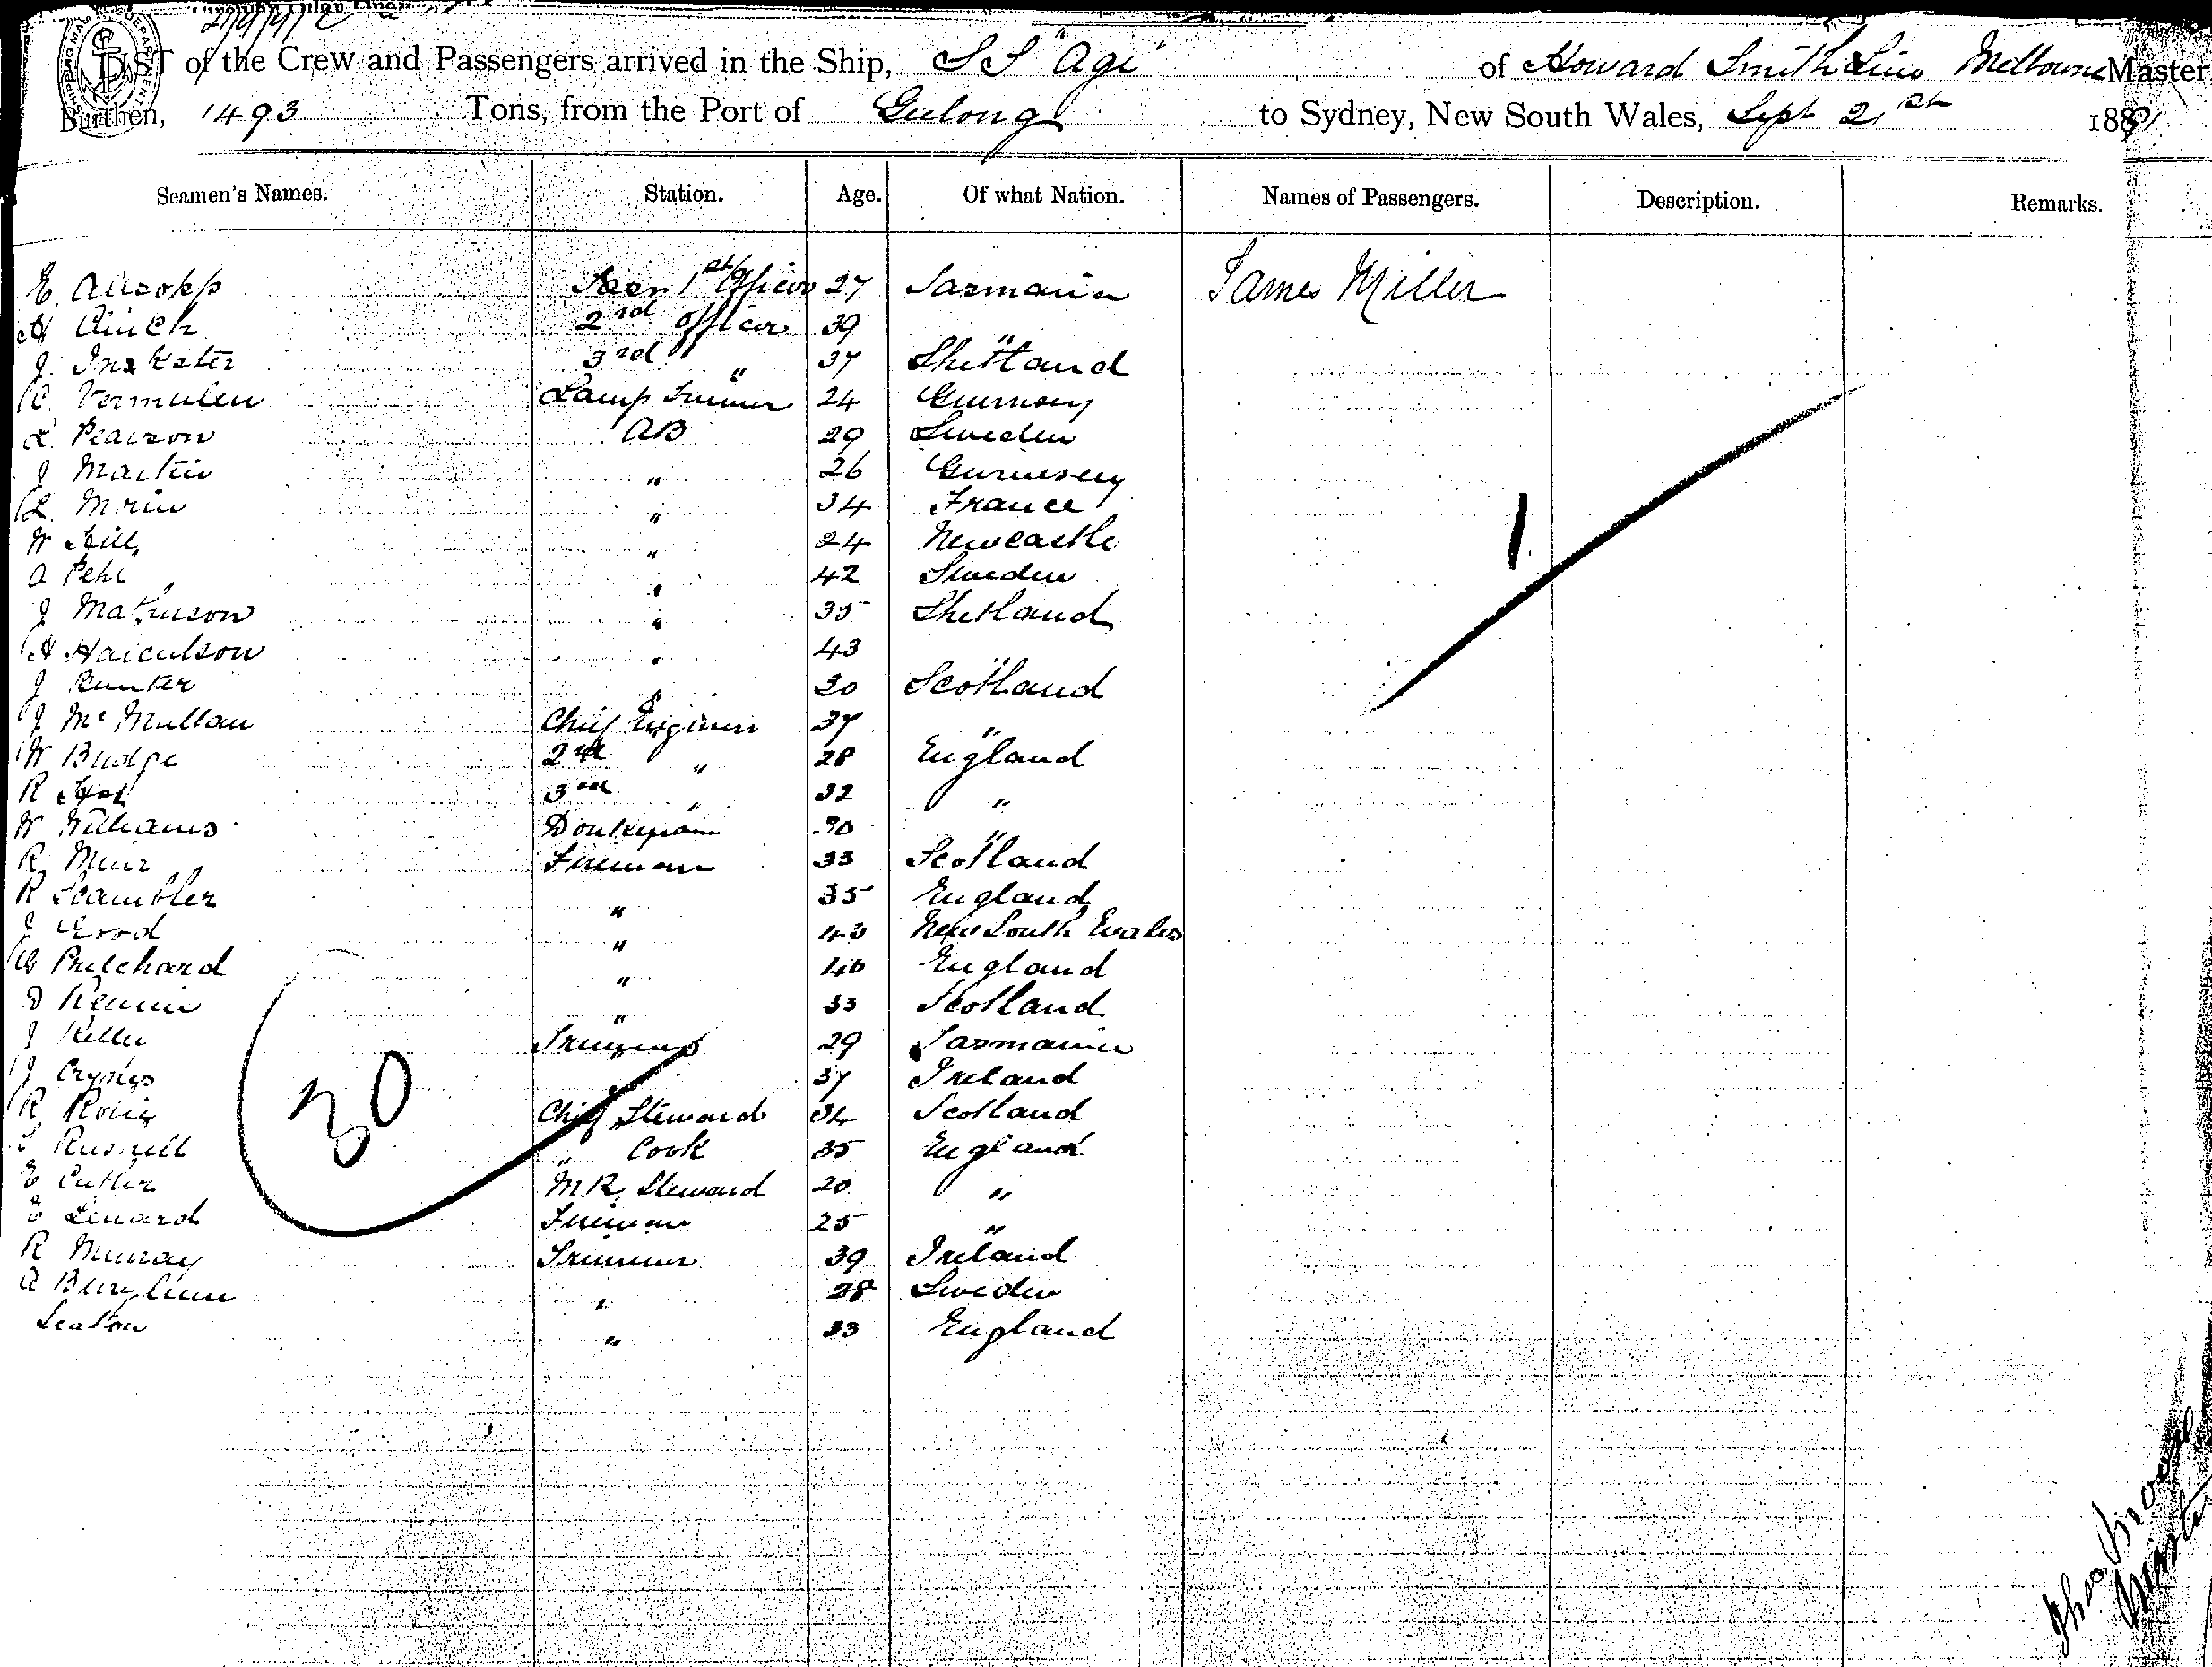 LIST of the Crew and Passengers arrived in the Ship, S S "Age" of Howard Smith Line Melbourne Master
Burthen, 1493 Tons, from the Port of Geelong to Sydney, New South Wales, Sept 21st 188
Seamen's Names. Station. Age. Of what Nation. Names of Passengers. Description. Remarks.
E. Allsopp 1st Officer 27 Tasmania James Miller
H 2nd officer 39 "
J. Inkster 3rd " 37 Shetland
C. Vermulen Lamp Trimmer 24 Guernsey
L. Pearson AB 29 Sweden
J Martin " 26 Gurnsey
L. Morin " 34 France
W Hill " 24 Newcastle
A Pehl " 42 Sweden
J Mathieson " 35 Shetland
H " 43 "
J Runker " 30 Scotland
J McMullan Chief Engineer 37 "
W Budge 2nd " 28 England
R 3rd " 32 "
W Williams Donkeyman 30 "
R Muir Fireman 33 Scotland
R Scambler " 35 England
J Wood " 43 New South Wales
G Pritchard " 46 England
D Rennie " 33 Scotland
J Keller Trimmer 29 Tasmania
J 37 Ireland
R Chief Steward 34 Scotland
Russell " Cook 35 England
E Cutler M.R. Steward 20 "
E Linard Fireman 25 "
R Murray Trimmer 39 Ireland
A " 28 Sweden
Seaton " 33 England
30
1
Master